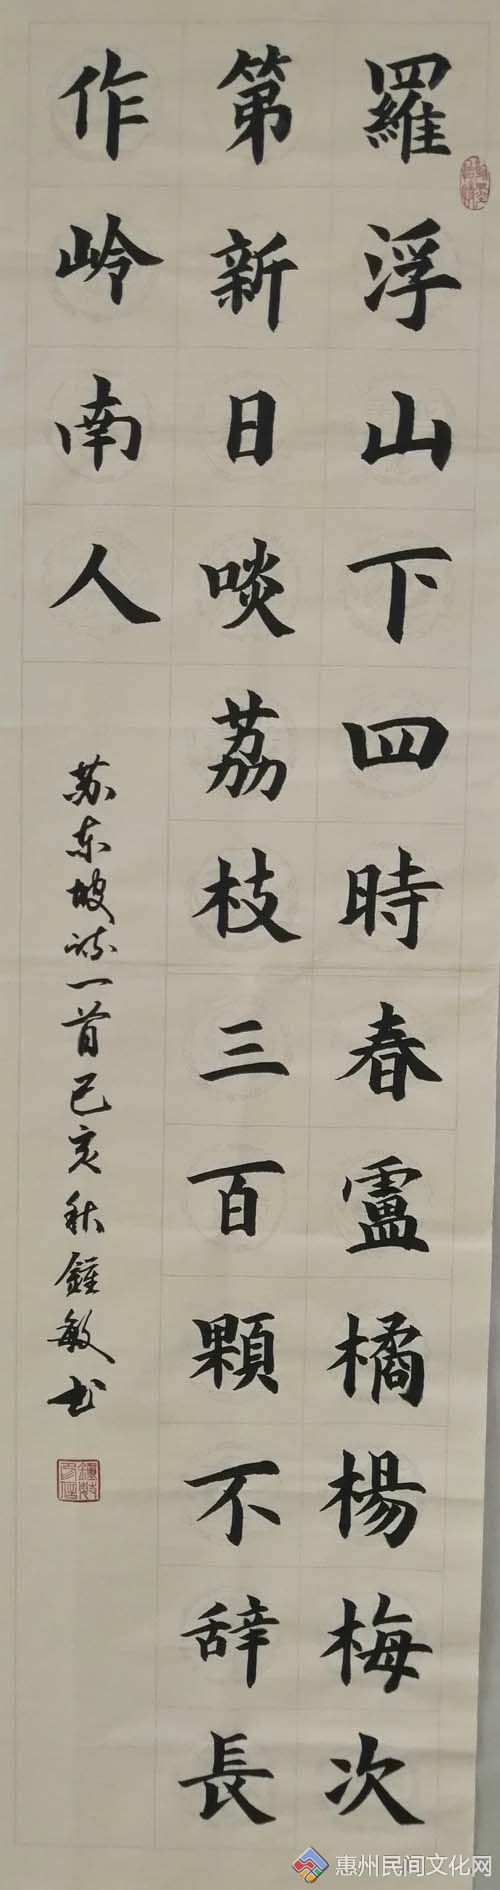 羅浮山下四時春盧橘楊梅次
第新日啖荔枝三百顆不辞長
作岭南人
苏东坡诗一首己亥秋鍾敏书
惠州民间文化网